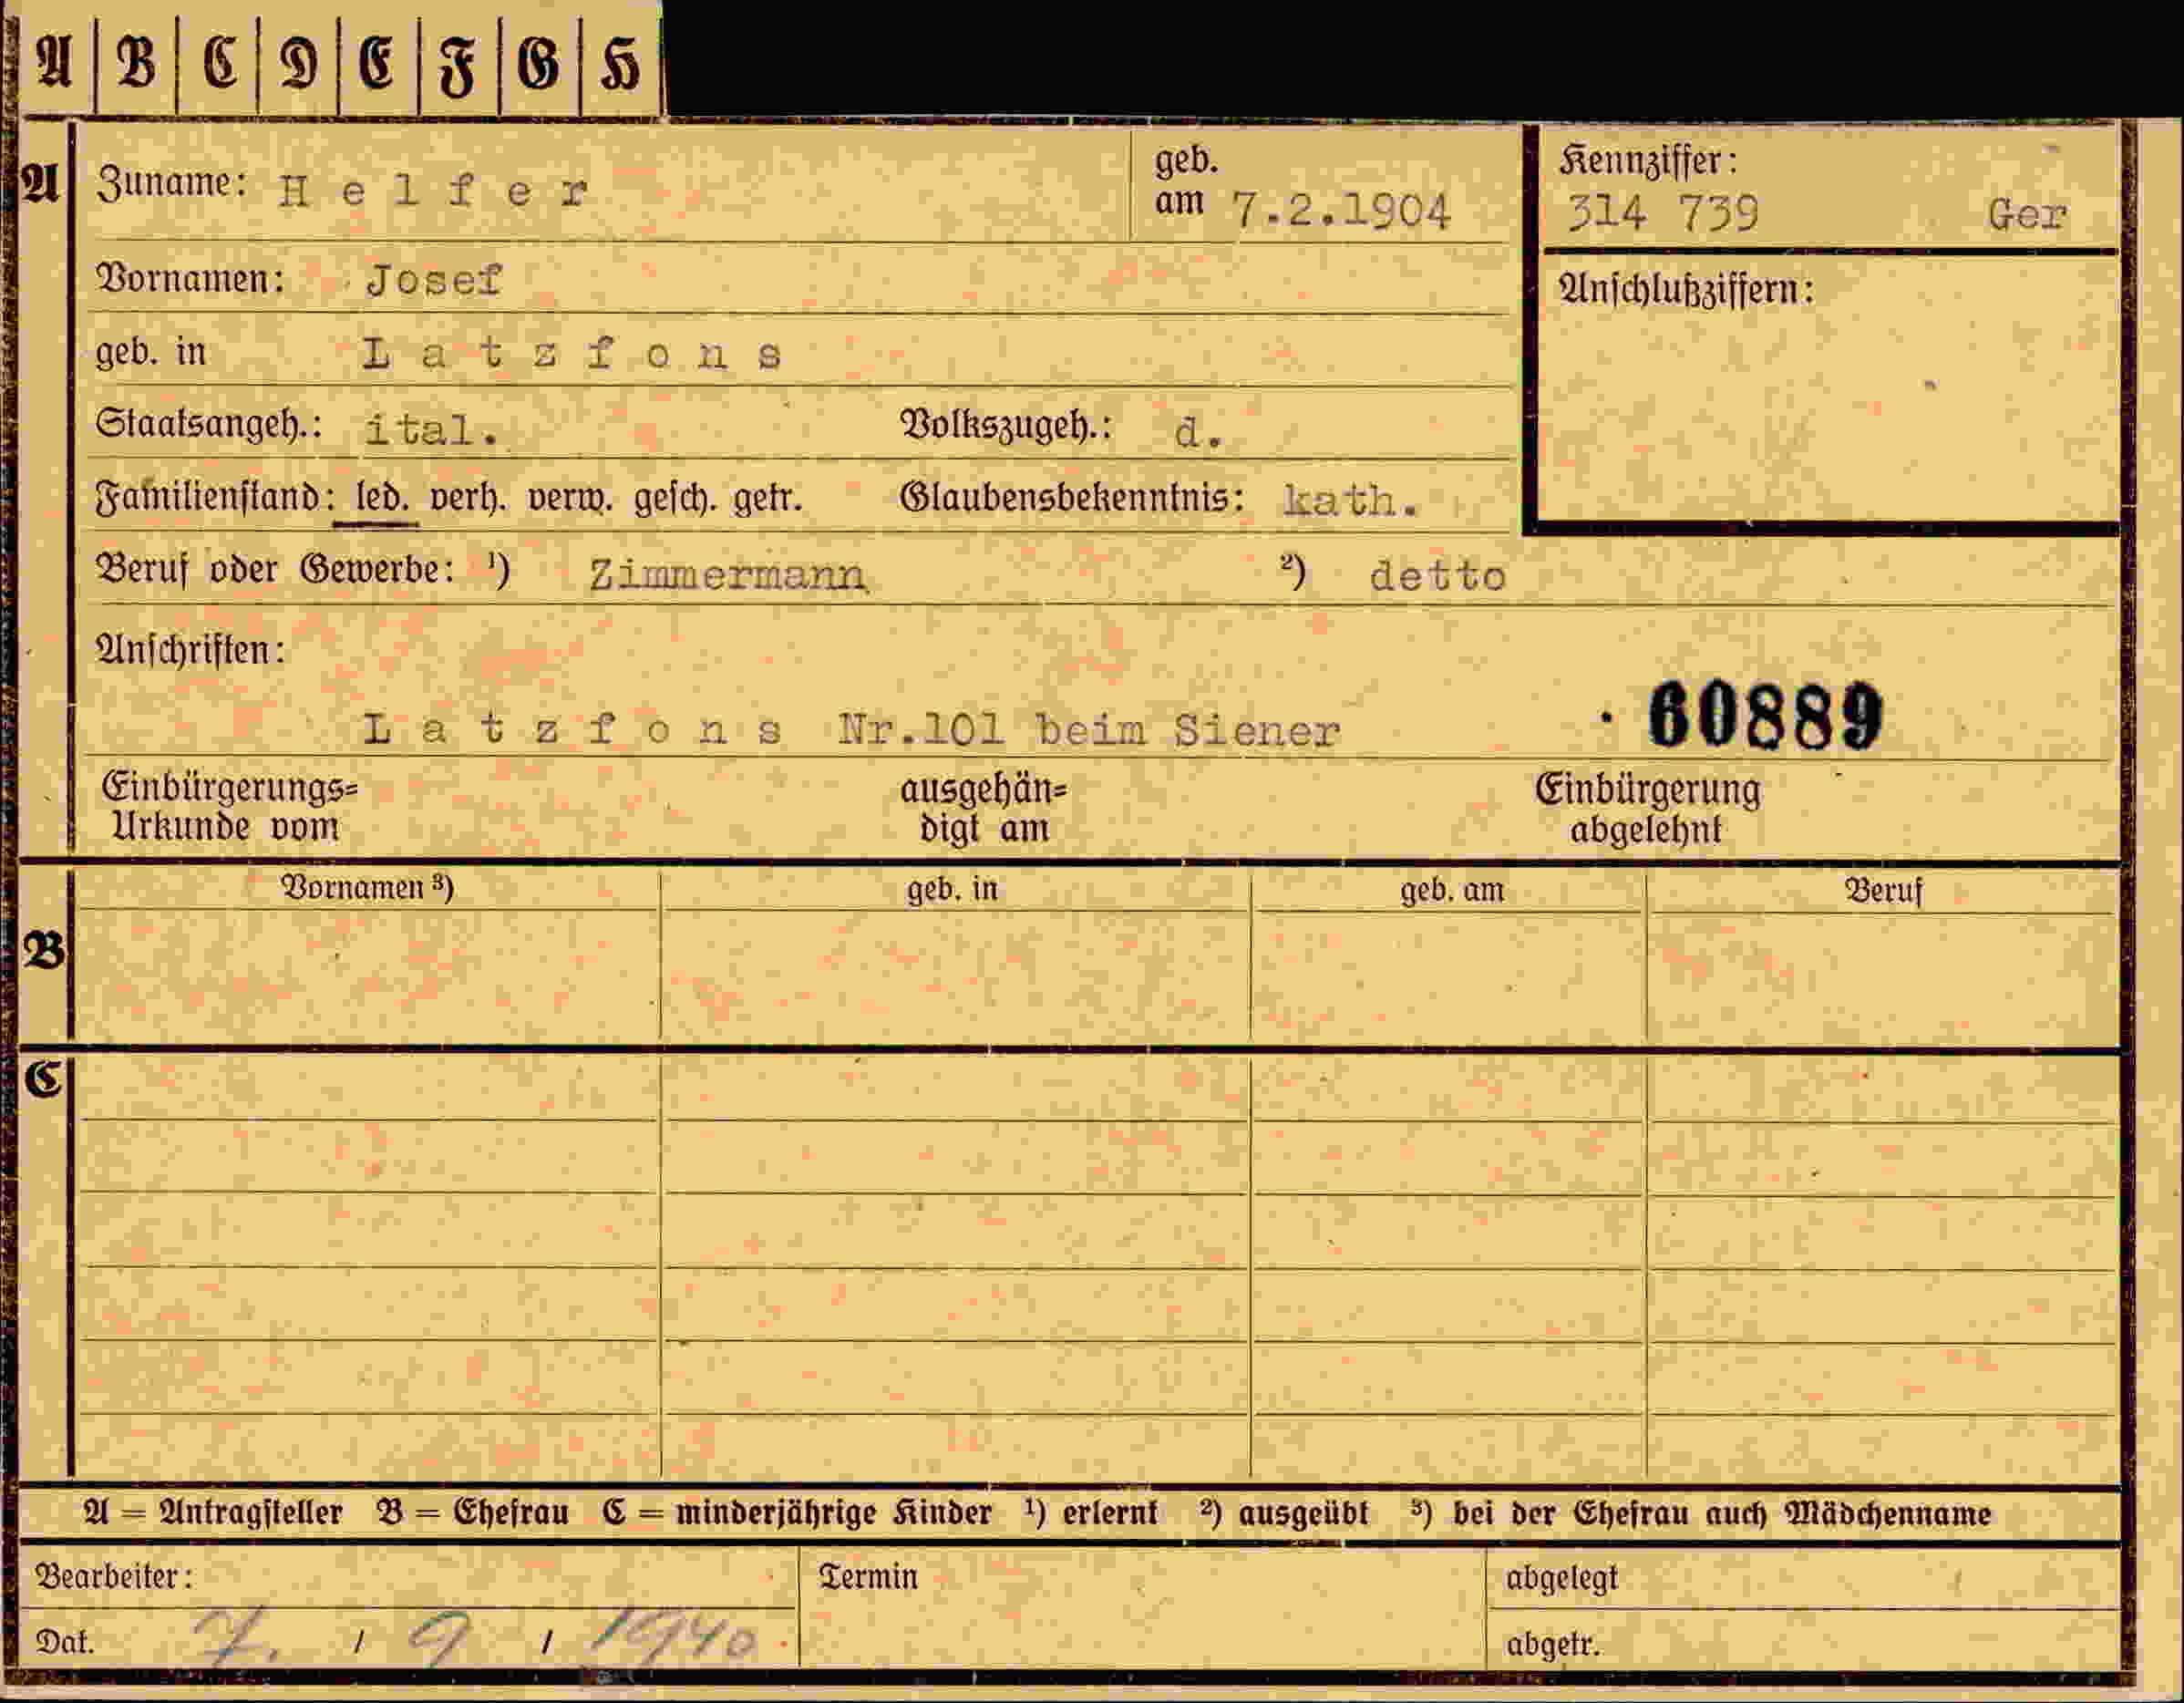 A B C D E F G H
A Zuname: Helfer geb. am 7.2.1904 Kennziffer: 314 739 Ger
Vornamen: Josef Anschlußziffern:
geb. in Latzfons
Staatsangeh.: ital. Volkszugeh.: d.
Familienstand: led. verh. verw. gesch. getr. Glaubensbekenntnis: kath.
Beruf oder Gewerbe: ¹) Zimmermann ²) detto
Anschriften:
Latzfons Nr.101 beim Siener 60889
Einbürgerungs= ausgehän= Einbürgerung
Urkunde vom digt am abgelehnt
Vornamen ³) geb. in geb. am Beruf
B
C
A = Antragsteller B = Ehefrau C = minderjährige Kinder ¹) erlernt ²) ausgeübt ³) bei der Ehefrau auch Mädchenname
Bearbeiter: Termin abgelegt
Dat. 7. / 9 / 1940 abgetr.